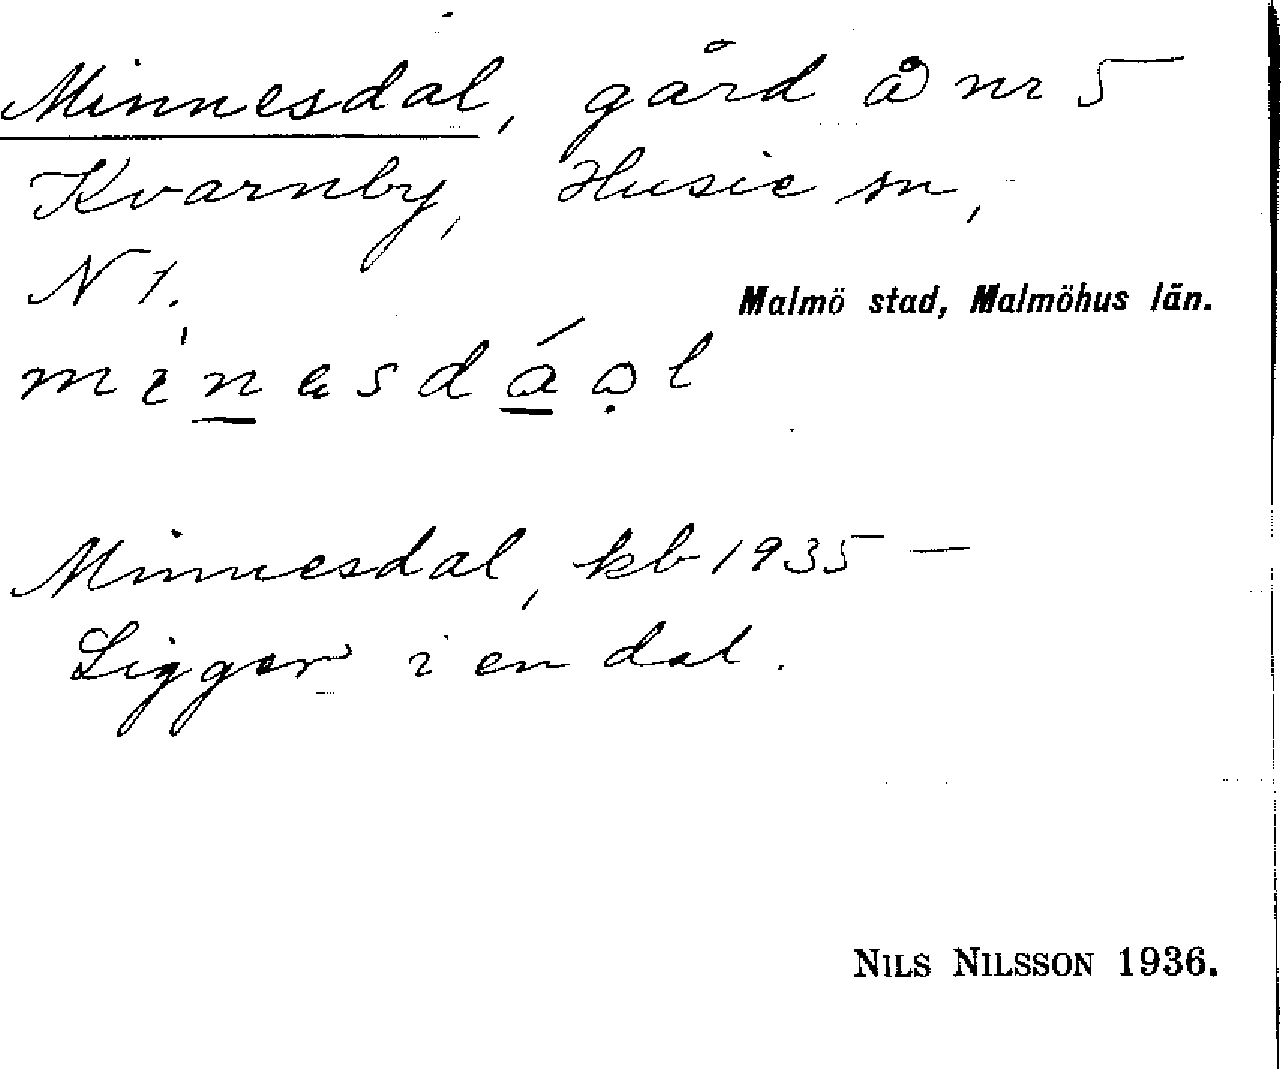 Minnesdal, gård å nr 5
Kvarnby, Husie sn,
N 1.
Malmö stad, Malmöhus län.
Minnesdal, kb 1935 —
Ligger i en dal.
NILS NILSSON 1936.